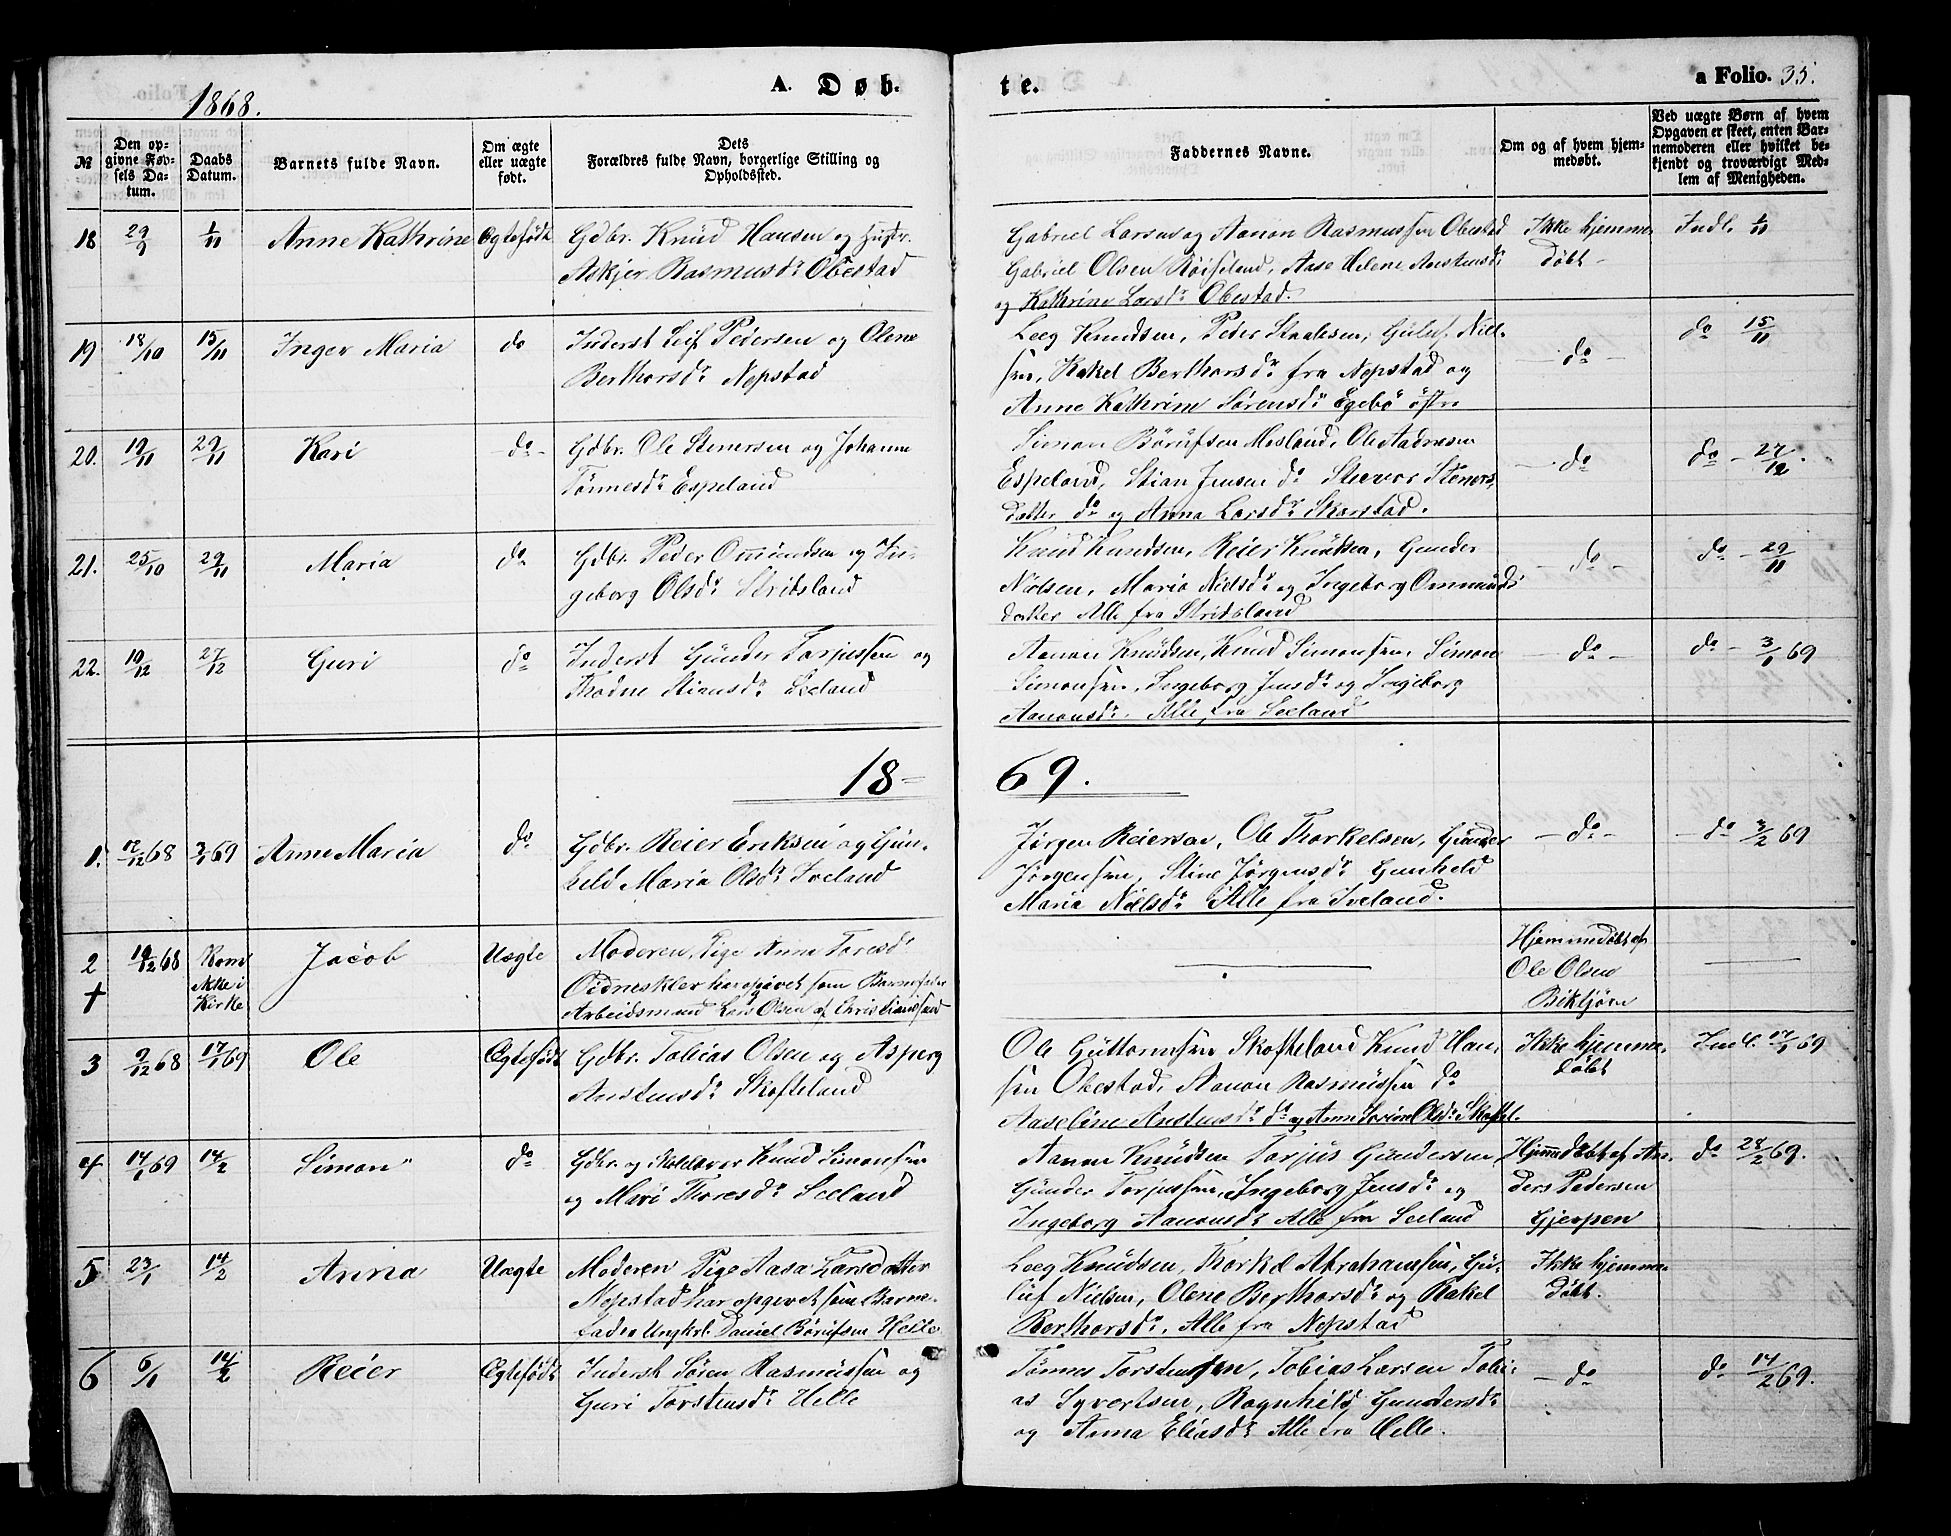 1868.
A. Døb.
te.
a Folio. 35.
№
Den opgivne Fødsels Datum.
Daabs Datum.
Barnets fulde Navn.
Om ægte eller uægte født.
Dets Forældres fulde Navn, borgerlige Stilling og Opholdssted.
Faddernes Navne.
Om og af hvem hjemmedøbt.
Ved uægte Børn af hvem Opgaven er skeet, enten Barnemoderen eller hvilket bekjendt og troværdigt Medlem af Menigheden.
18 29/9 1/11 Anne Kathrine Ægtefödt
Gdbr. Knüd Hansen og Hustr.
Askjer Rasmusdr Obestad
Gabriel Larsen og Aanon Rasmussen Obestad
Gabriel Olsen Röiseland, Aase Helene Anstensdr
og Kathrine Larsdr Obestad.
Ikke hjemme
döbt
Indl. 1/11
19 18/10 15/11 Inger Maria do
Inderst Leif Pedersen og Olene
Berthorsdr Nepstad
Leeg Knudsen, Peder Staalesen, Gulüf Niel-
sen, Rakel Berthorsdr fra Nepstad og
Anne Kathrine Sörensdr Egebö östre
do
do 15/11
20. 19/11 29/11 Kari do
Gdbr. Ole Stenersen og Johanne
Tönnesdr Espeland
Simon Börufsen Mesland, Ole Aadnesen
Espeland, Stian Jensen do Steevor Steners
datter do og Anna Larsdr Skarstad.
do
do 27/12.
21. 25/10 29/11 Maria do
Gdbr. Peder Omündsen og In-
geborg Olsdr Stridsland
Knud Knudsen, Reier Knüdsen, Gunder
Nielsen, Maria Nielsdr og Ingeborg Ommunds
datter Alle fra Stridsland
do
do 29/11
22. 10/12 27/12 Guri do
Inderst Günder Torjussen og
Thodne Stiansdr Iveland
Aanon Knüdsen, Knud Simonsen, Simon
Simonsen, Ingeborg Jensdr og Ingeborg
Aanonsdr. Alle fra Iveland
do
do 3/1 69
18-69.
1. 12/12 68 3/1 69 Anne Maria do
Gdbr. Reier Eriksen og Gün-
held Maria Olsdr Iveland
Jörgen Reiersen, Ole Thorkelsen, Günder
Jörgensen, Stine Jörgensdr Gunheld
Maria Nielsdr Alle fra Iveland.
do
do 3/2 69
2 19/12 68 Kom
† ikke i
Kirke
Jacob Uægte
Moderen, Pige Anne Toresdr
Oidneskler har opgivet som Barnefader
Arbeidsmand Lars Olsen af Christiansand
Hjemmedöbt af
Ole Olsen
Birkjörn
3 9/12 68 17/1 69 Ole Ægtefödt
Gdbr. Tobias Olsen og Asperg
Anstensdr Skofteland
Ole Güttormsen Skofteland Knud Han-
sen Obestad, Aanon Rasmüssen do
Aaseline Anstensdr do og Anne Sörine Olsdr Skoftel.
Ikke hjemme-
döbt
Indl. 17/1 69
4 14/1 69 14/2 Simon do
Gdbr. og Skolelærer Knud Simonsen
og Mari Thoresdr Iveland
Aanon Knüdsen Torjüs Gündersen,
Günder Torjussen, Ingeborg Jensdr og
Ingeborg Aanonsdr Alle fra Iveland
Hjemmdöbt af An-
ders Pedersen
Gjerpen
do 28/2 69.
5 23/1 14/2 Anna Uægte
Moderen Pige Aasa Larsdatter
Nepstad har opgevet som Barne-
fader Ungkrl. Daniel Börufsen Helle
Leeg Knüdsen, Thorkel Abrahamsen, Gü-
lüf Nielsen, Olene Berthorsdr og Rakel
Berthorsdr. Alle fra Nepstad
Ikke hjemme
döbt.
6 6/1 14/2 Reier Ægtefödt
Inderst Sören Rasmüssen og
Guri Torstensdr Helle
Tönnes Torstensen, Tobias Larsen Tobi-
as Syvertsen, Ragnhild Gundersdr
og Anna Eliasdr Alle fra Helle.
do
do 14/2 69.